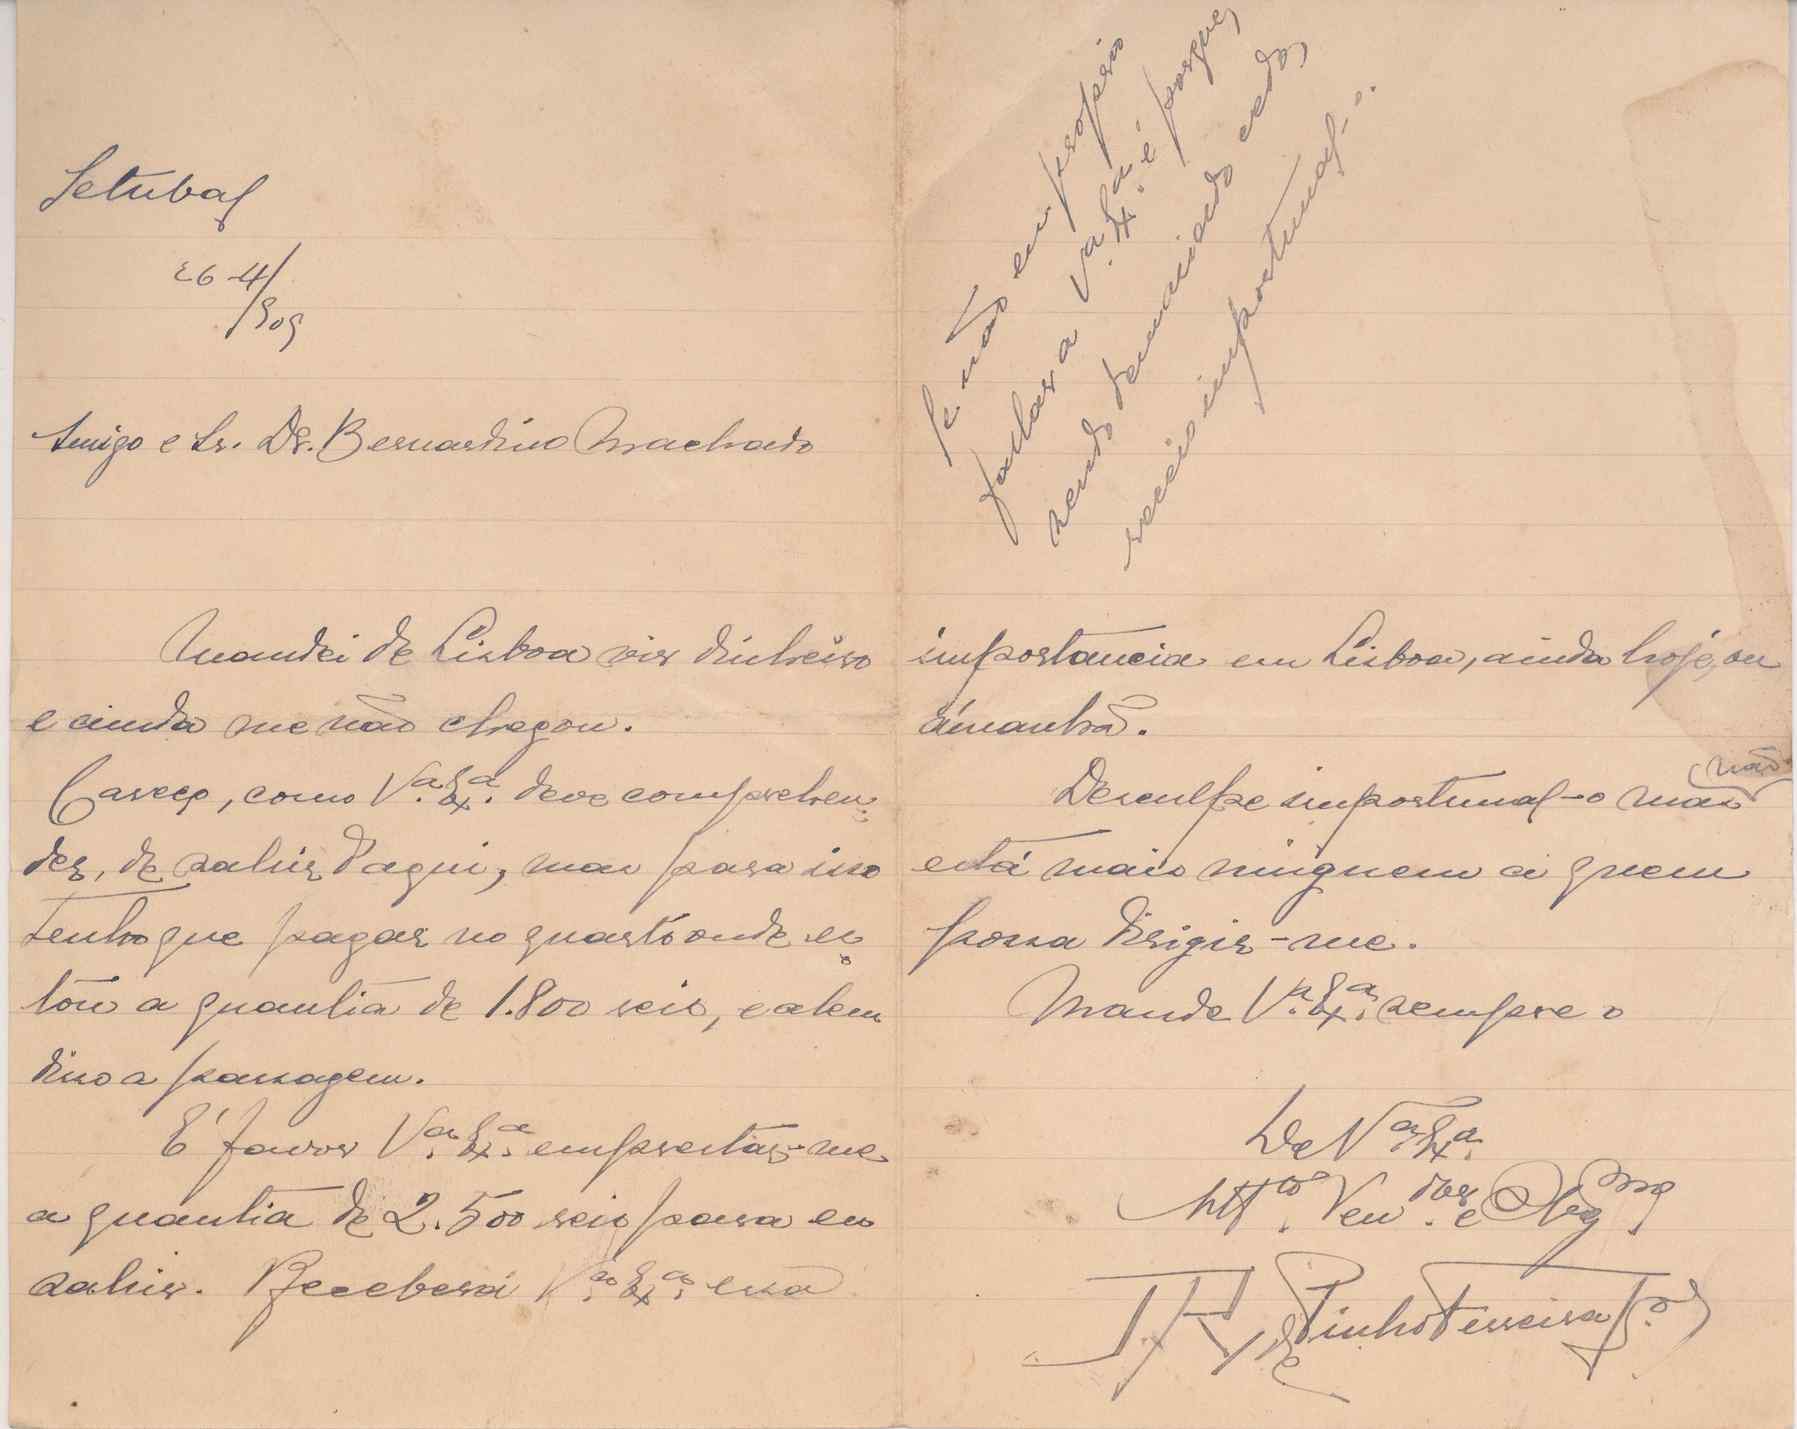 Setubal
26-4/909
Amigo e Sr. Dr. Bernardino Machado
Mandei de Lisboa vir dinheiro
e ainda me não chegou.
Careço, como V.ª Ex.ª deve comprehen-
der, de sahir d'aqui, mas para isso
tenho que pagar no quarto onde es-
tou a quantia de 1.800 reis, e alem
disso a passagem.
E' favor V.ª Ex.ª emprestar-me
a quantia de 2.500 reis para eu
sahir. Receberá V.ª Ex.ª essa
importancia em Lisboa, ainda hoje, ou
ámanhã.
Desculpe importunal-o mas não
está mais ninguem a quem
possa dirigir-me.
Mande V.ª Ex.ª sempre o
De V.ª Ex.ª
Att.to Ven.dor e Obg.mo
de Pinho Ferreira J.or
Se não eu proprio
fallar a V.ª Ex.ª é porque,
sendo demaziado cedo,
receio importunal-o.